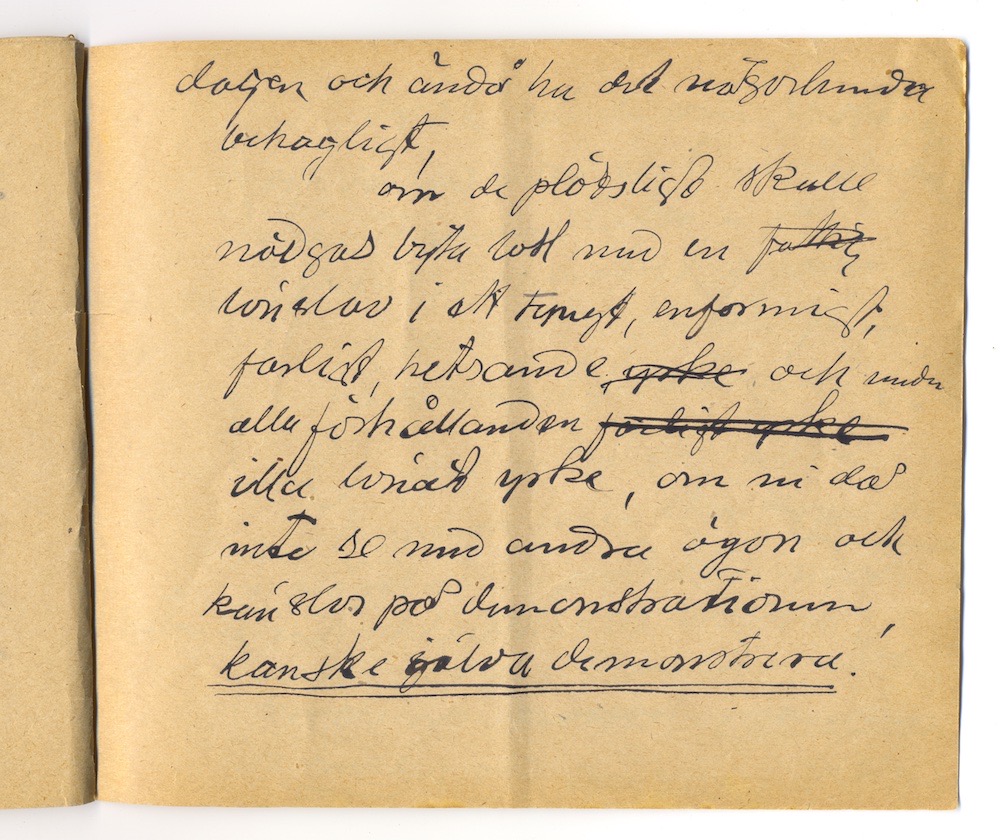 dagen och ändå ha det någorlunda
behagligt,
om de plötsligt skulle
nödgas byta lott med en fattig
lönslav i ett tungt, enformigt,
farligt, hetsande yrke och under
alla förhållanden farligt yrke
illa lönat yrke, om ni då
inte se med andra ögon och
känslor på demonstrationen,
kanske själva demonstrera.